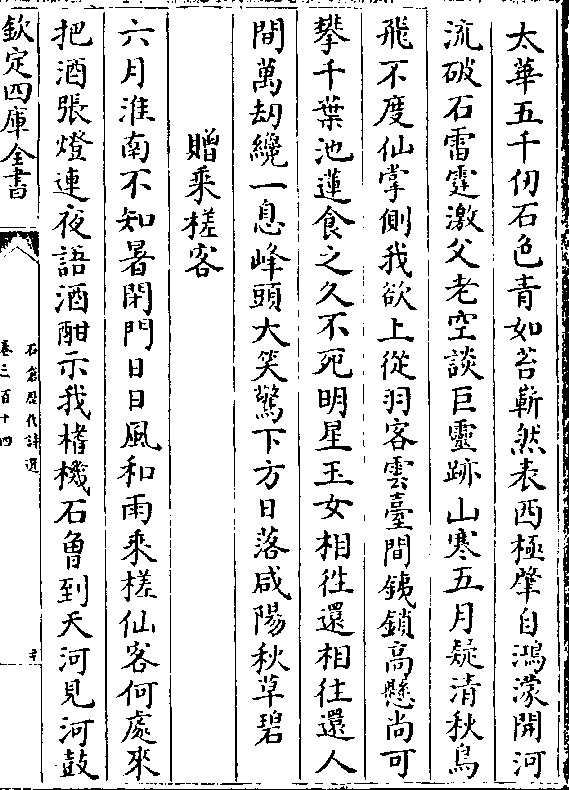 太華五千仞石色青如苔嶄然表西極肇自鴻濛開河
流破石雷霆激父老空談巨靈跡山寒五月疑清秋鳥
飛不度仙掌側我欲上從羽客雲臺間鐵鎖髙懸尚可
攀千葉池蓮食之久不死明星玉女相徃還相往還人
間萬刼纔一息峰頭大笑驚下方日落咸陽秋草碧
贈乘槎客
六月淮南不知暑閉門日日風和雨乘槎仙客何處來
把酒張燈連夜語酒酣示我榰機石曾到天河見河鼓
欽定四庫全書
石倉歴代詩選
卷三百十四